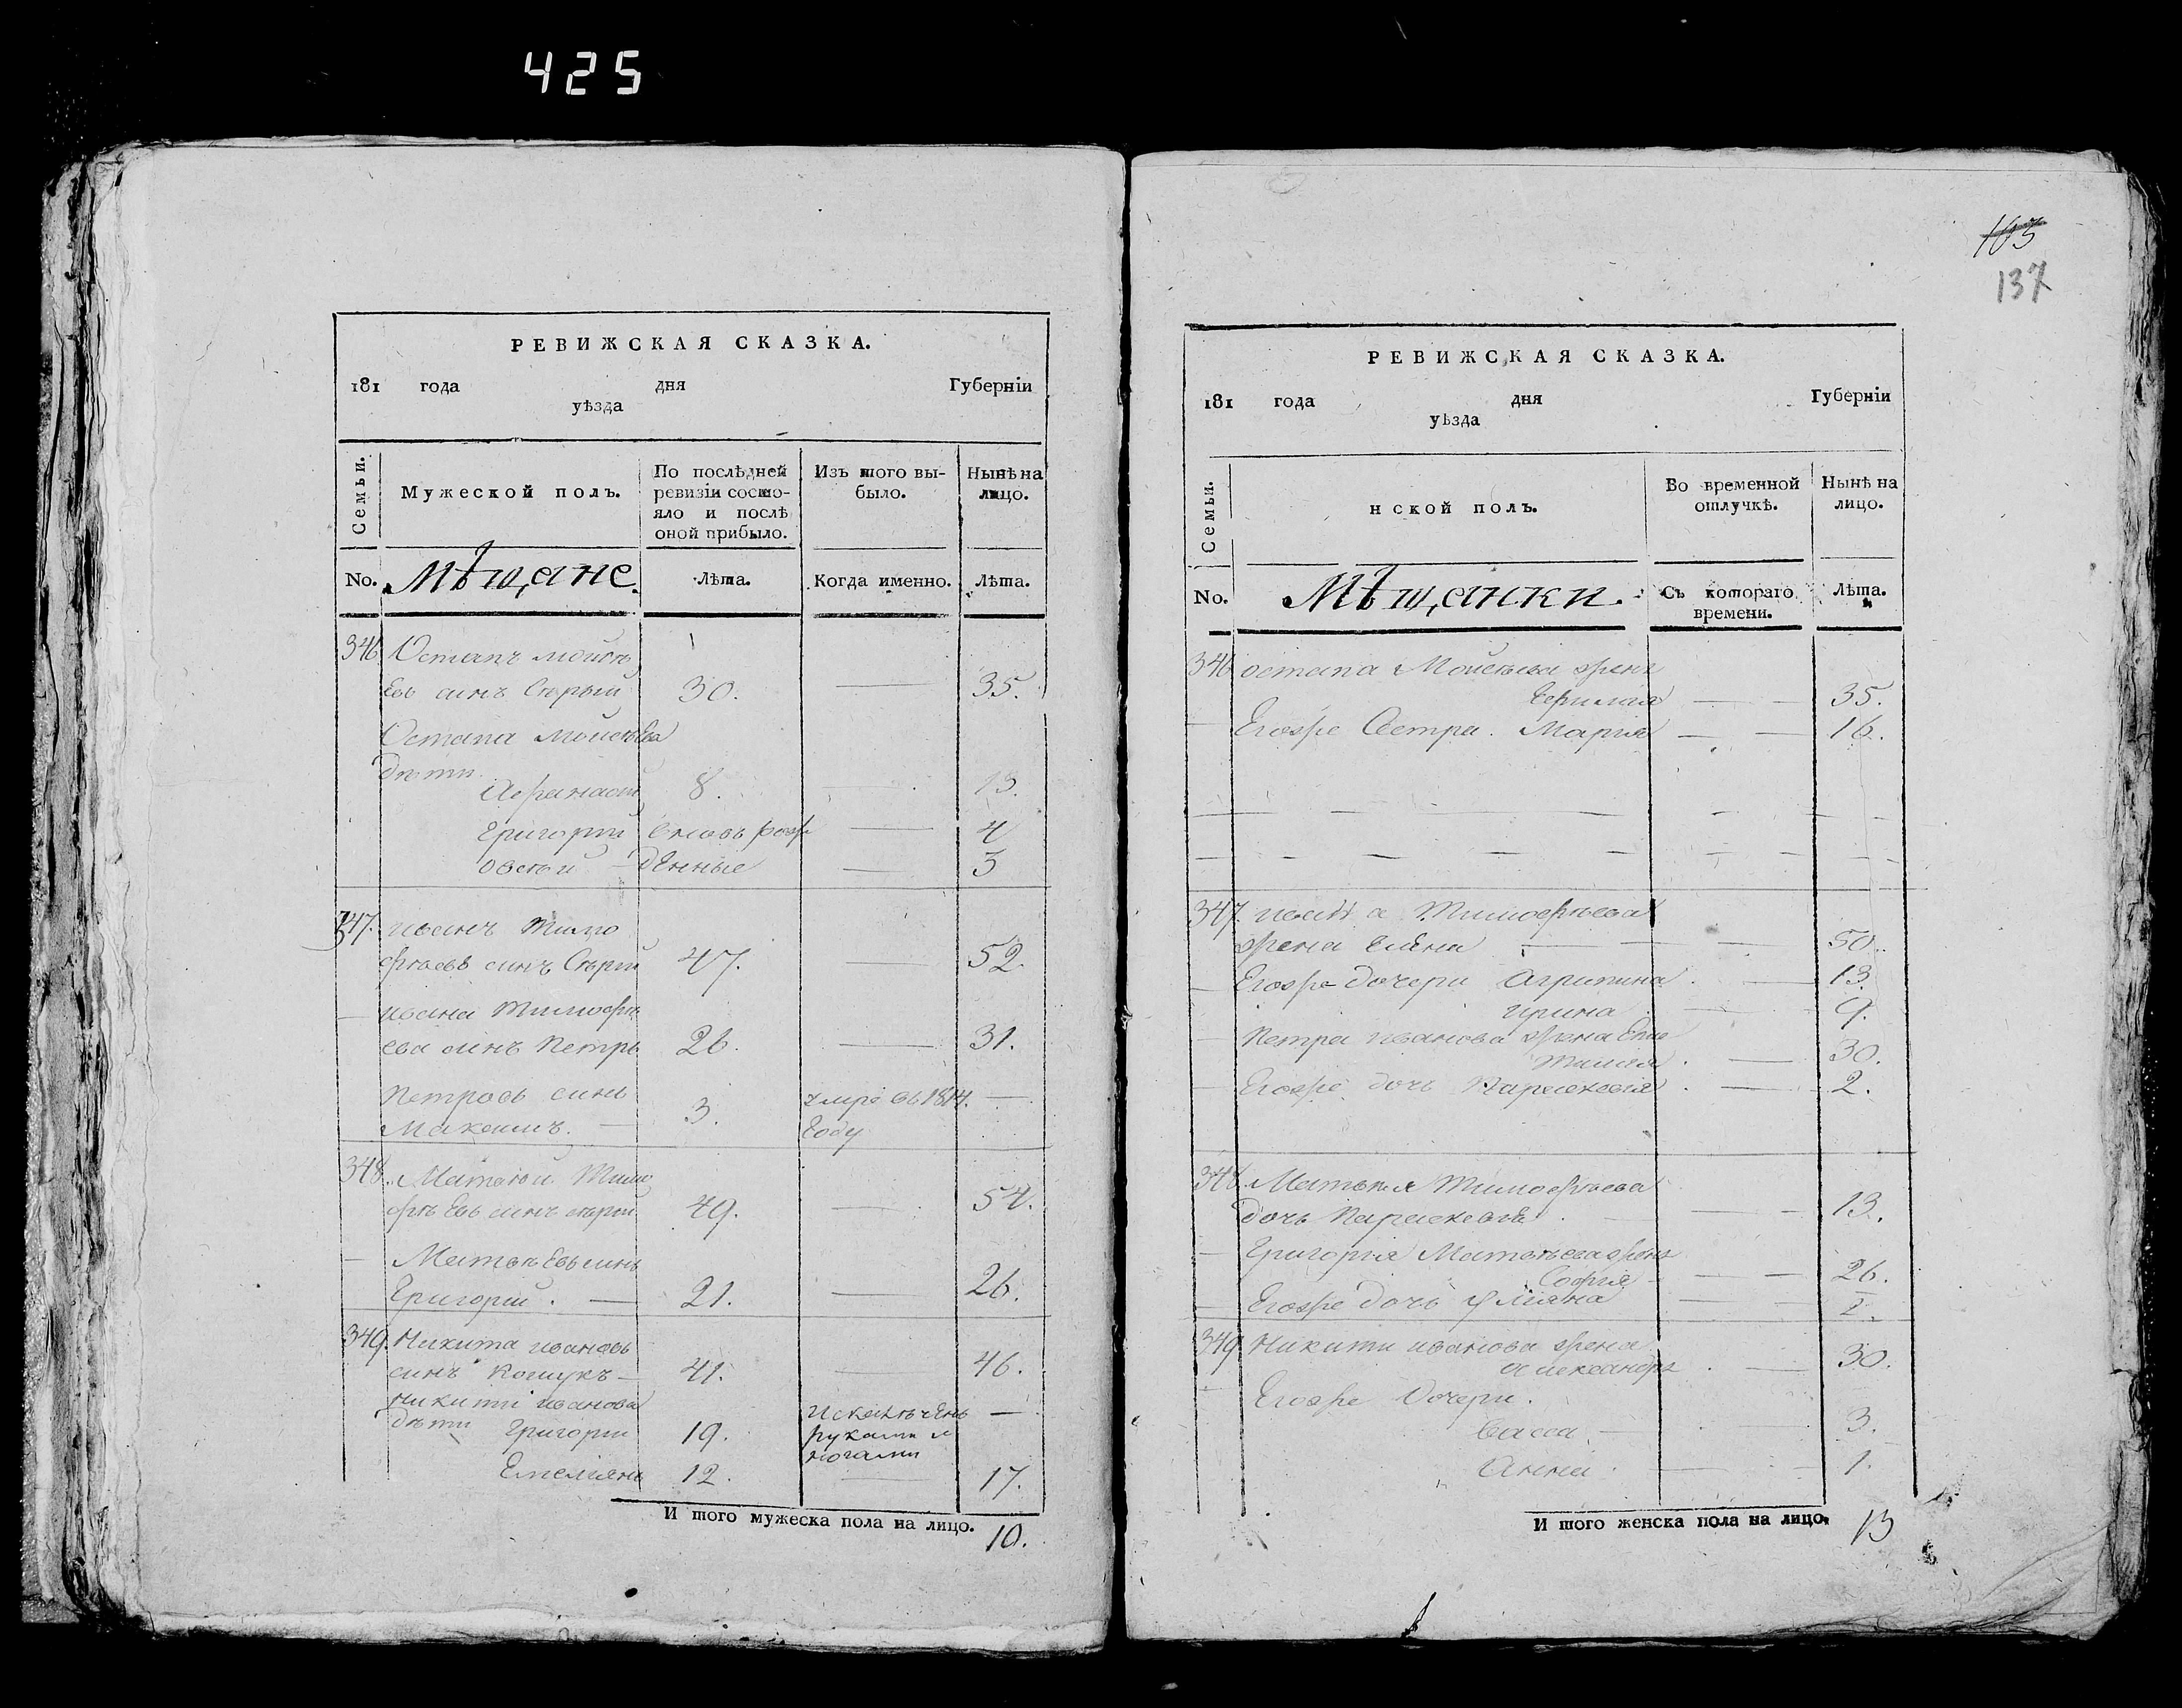 425
РЕВИЖСКАЯ СКАЗКА.
181 года дня Губерніи
уѣзда
Семьи.
Мужеской полъ.
По послѣдней ревизіи состо-
яло и послѣ оной прибыло.
Изъ того вы-
было.
Нынѣ на
лицо.
No. Мѣщане. Лѣта. Когда именно. Лѣта.
346 Остапъ мойсѣ
евъ синъ Сѣрый 30. — 35.
Остапа мойсѣева
дѣти
Афанасій 8. — 13.
Григорій вновь рож — 4
овсѣй — денные — 3
347. иванъ Тимо
фѣевъ синъ Сѣрій 47. — 52.
— ивана Тимофѣ
ева синъ Петръ 26. — 31.
Петровъ синъ 3. умре въ 1814. —
Максимъ. — году
348. Матвѣй Тимо
фѣевъ синъ сѣрій 49. — 54.
— Матвѣевъ синъ
Григорій. — 21. — 26.
349. Никита ивановъ
синъ — 41. — 46.
никити иванова
дѣти Григорій 19. искалѣченъ —
руками и
ногами
Емеліянъ 12. — 17.
И того мужеска пола на лицо. 10.
103
137
РЕВИЖСКАЯ СКАЗКА.
181 года дня Губерніи
уѣзда
Семьи.
нской полъ.
Во временной
отлучкѣ.
Нынѣ на
лицо.
No. Мѣщанки. Съ котораго
времени. Лѣта.
346 остапа Мойсѣева жена
— — 35.
— Егожъ Сестра. Марія — — 16.
347. ивана Тимофѣева
жена — — 50.
— Егожъ дочери Агрипина. — 13.
ирина. — 9.
Петра иванова жена
— 30.
— Егожъ дочь Параскевія. — 2.
348. Матвѣя Тимофѣева
дочь Параскевія. — — 13.
— Григорія Матвѣева жена
Софія — — 26.
— Егожъ дочь Уліяна — — 2.
349 Никити иванова жена
александра. — 30.
— Егожъ дочери.
васса. — 3.
Анна. — — 1.
И того женска пола на лицо. 13